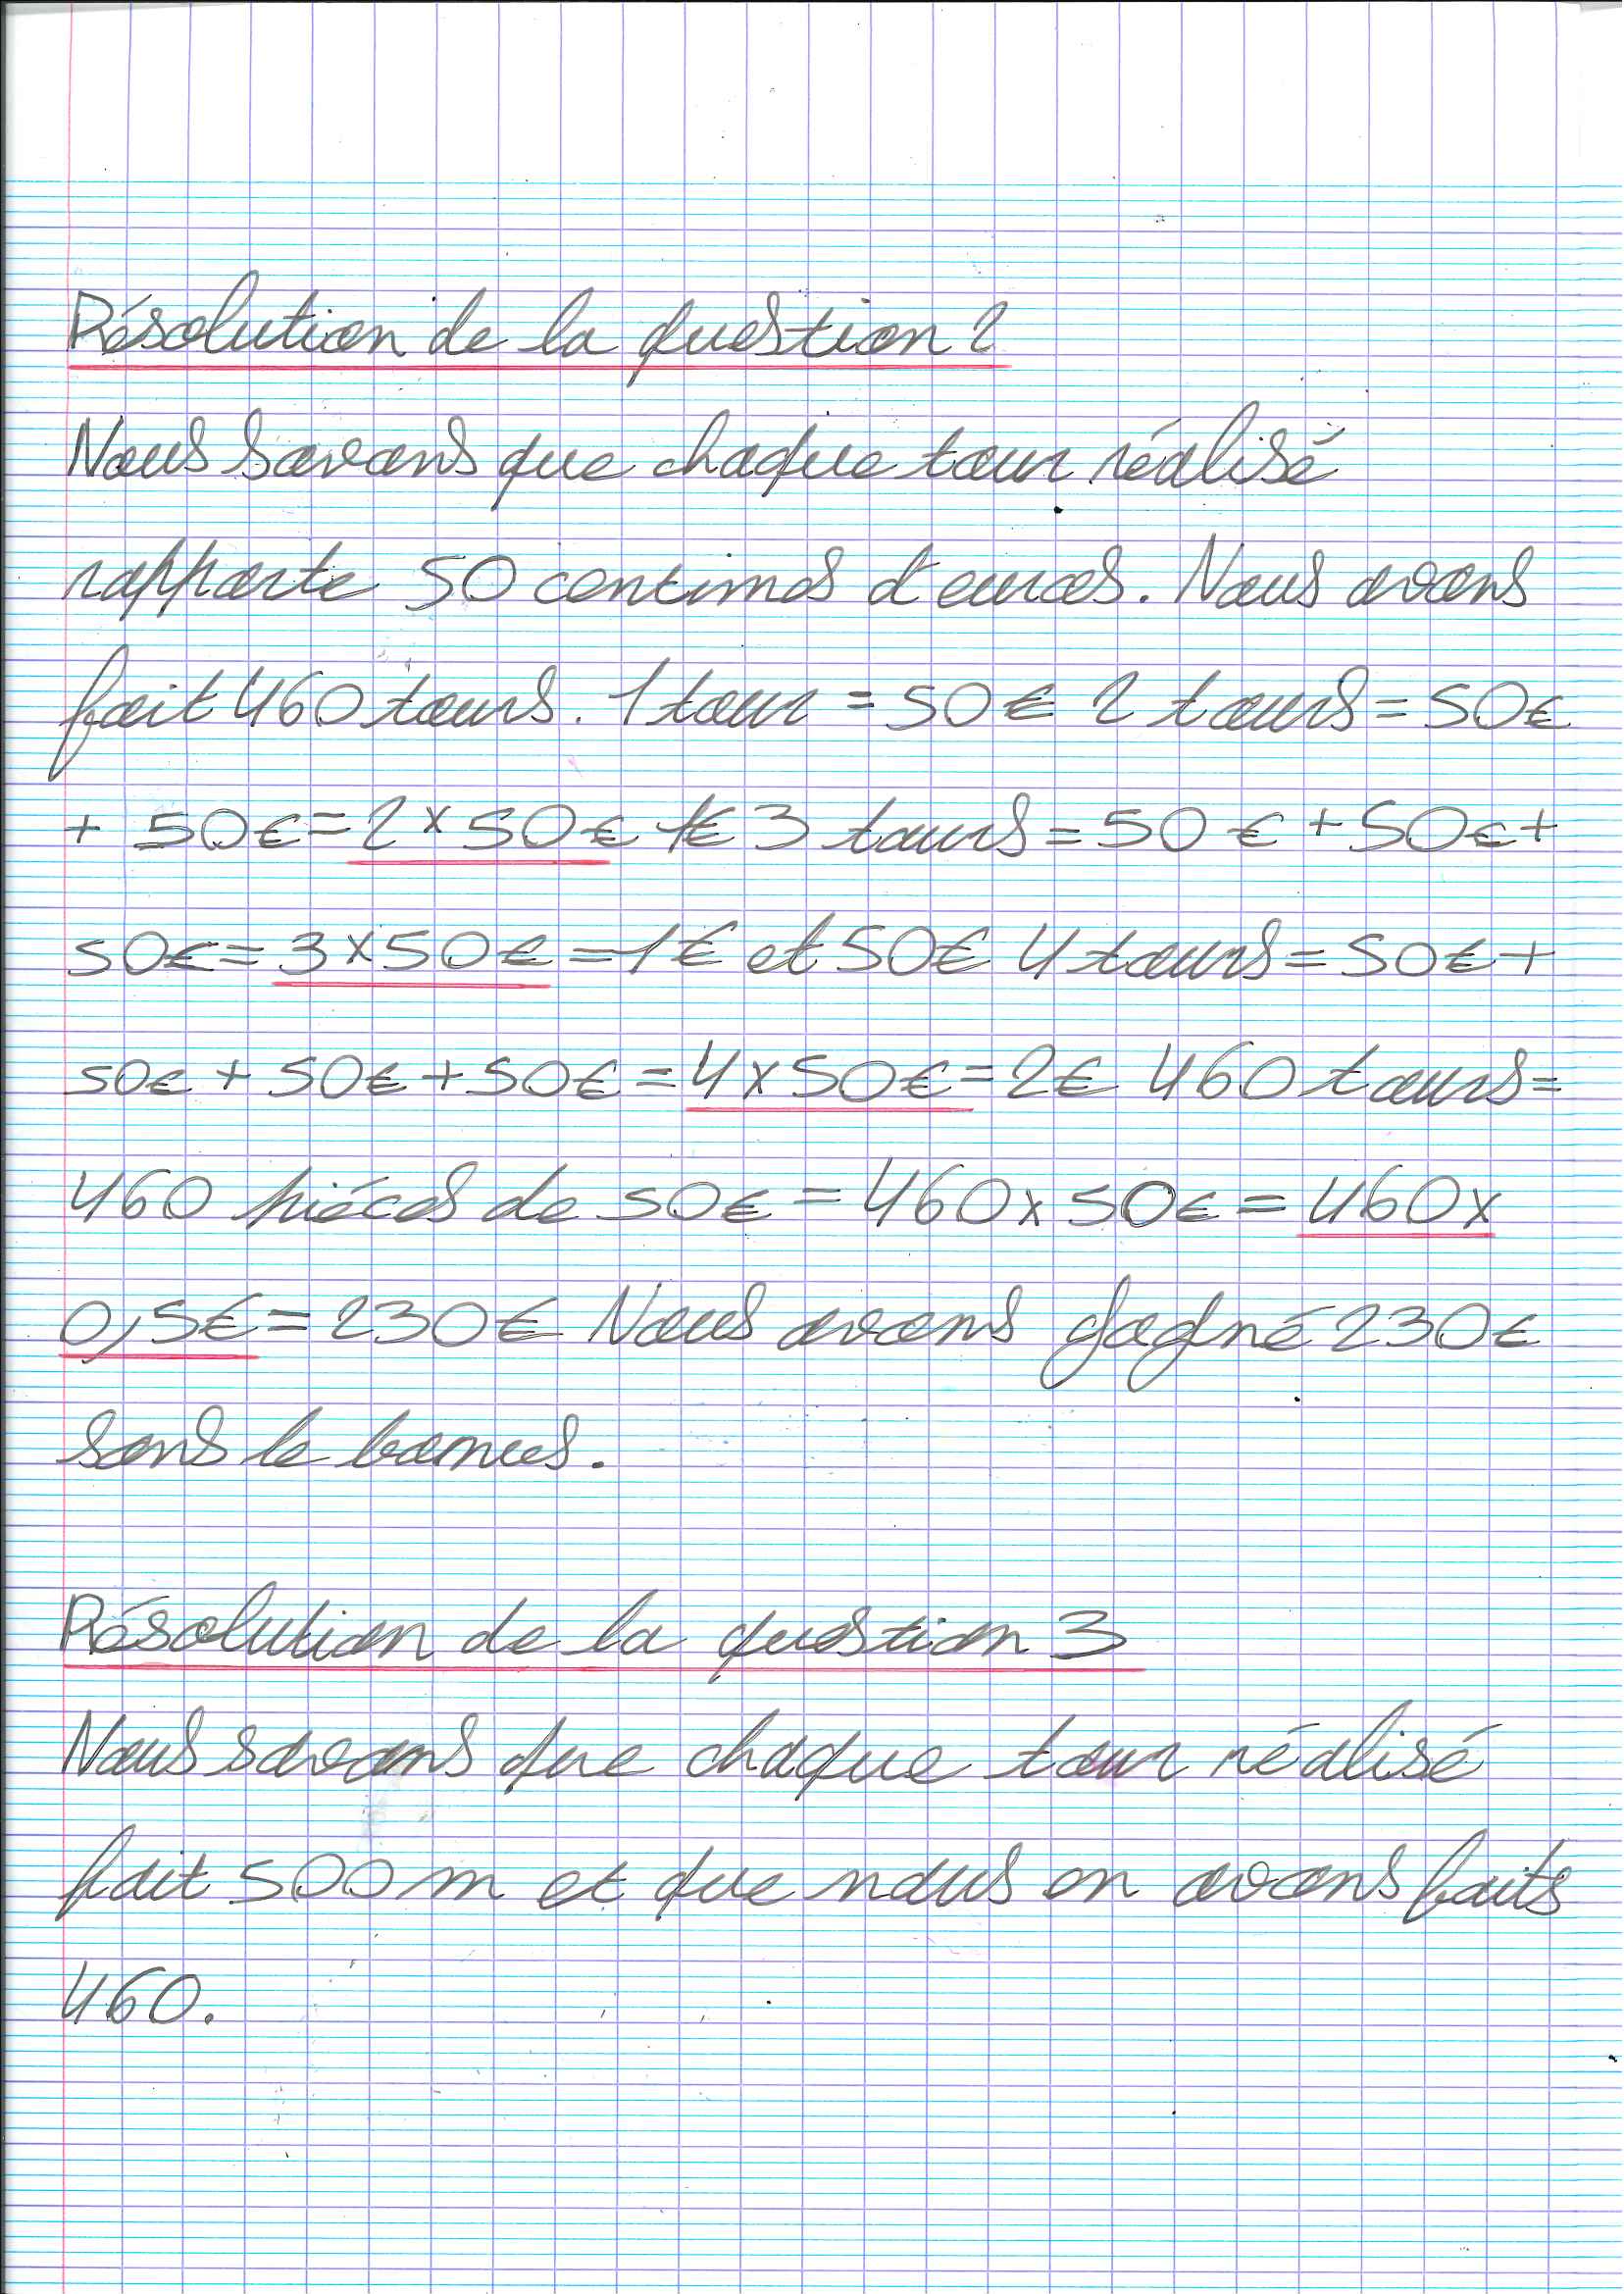 Résolution de la question 2
Nous savons que chaque tour réalisé
rapporte 50 centimes d'euros. Nous avons
fait 460 tours. 1 tour = 50€ 2 tours = 50€
+ 50€ = 2 x 50€ 1€ 3 tours = 50€ + 50€ +
50€ = 3 x 50€ = 1€ et 50€ 4 tours = 50€ +
50€ + 50€ + 50€ = 4 x 50€ = 2€ 460 tours =
460 piéces de 50€ = 460 x 50€ = 460 x
0,5€ = 230€ Nous avons gagné 230€
sans le bonus.
Résolution de la question 3
Nous savons que chaque tour réalisé
fait 500 m et que nous en avons faits
460.